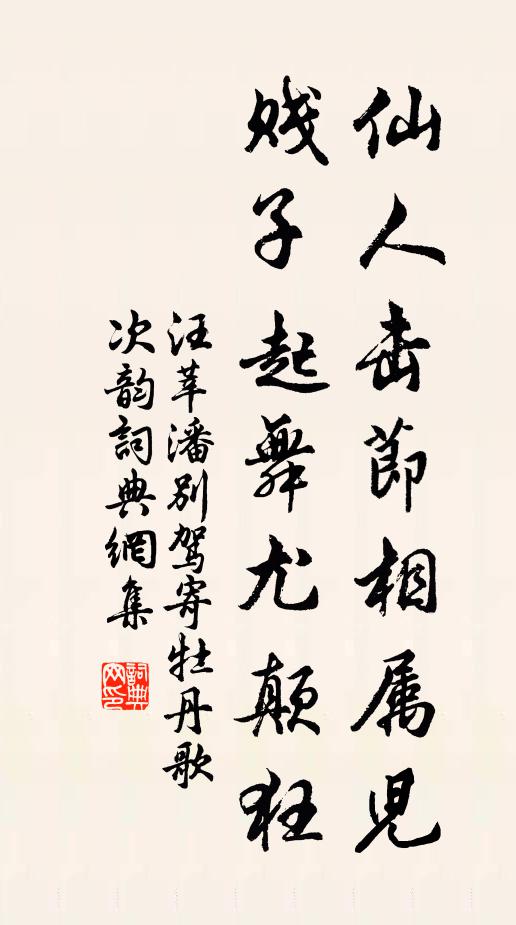 仙人击節相属児
贱子起舞尤颠狂
汪莘潘别驾寄牡丹歌
次韵詞典網集
詞典
网印